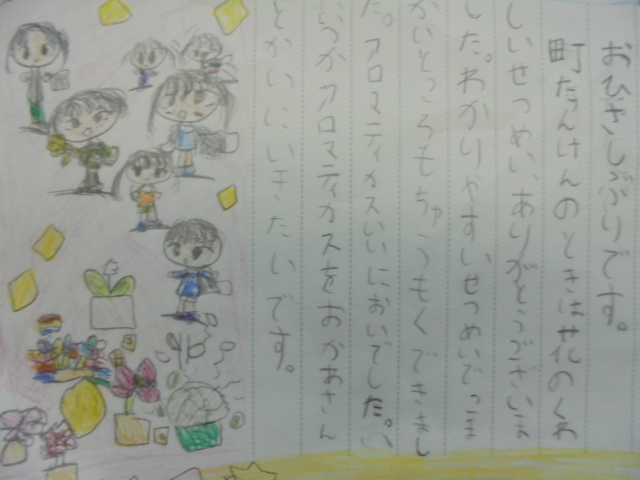 おひさしぶりです。
町たんけんのときは花のくわ
しいせつめい、ありがとうございま
した。わかりやすいせつめいでこま
かいところもちゅうもくできまし
た。アロマティカスいいにおいでした。い
いつかアロマティカスをおかあさん
とかいにいきたいです。